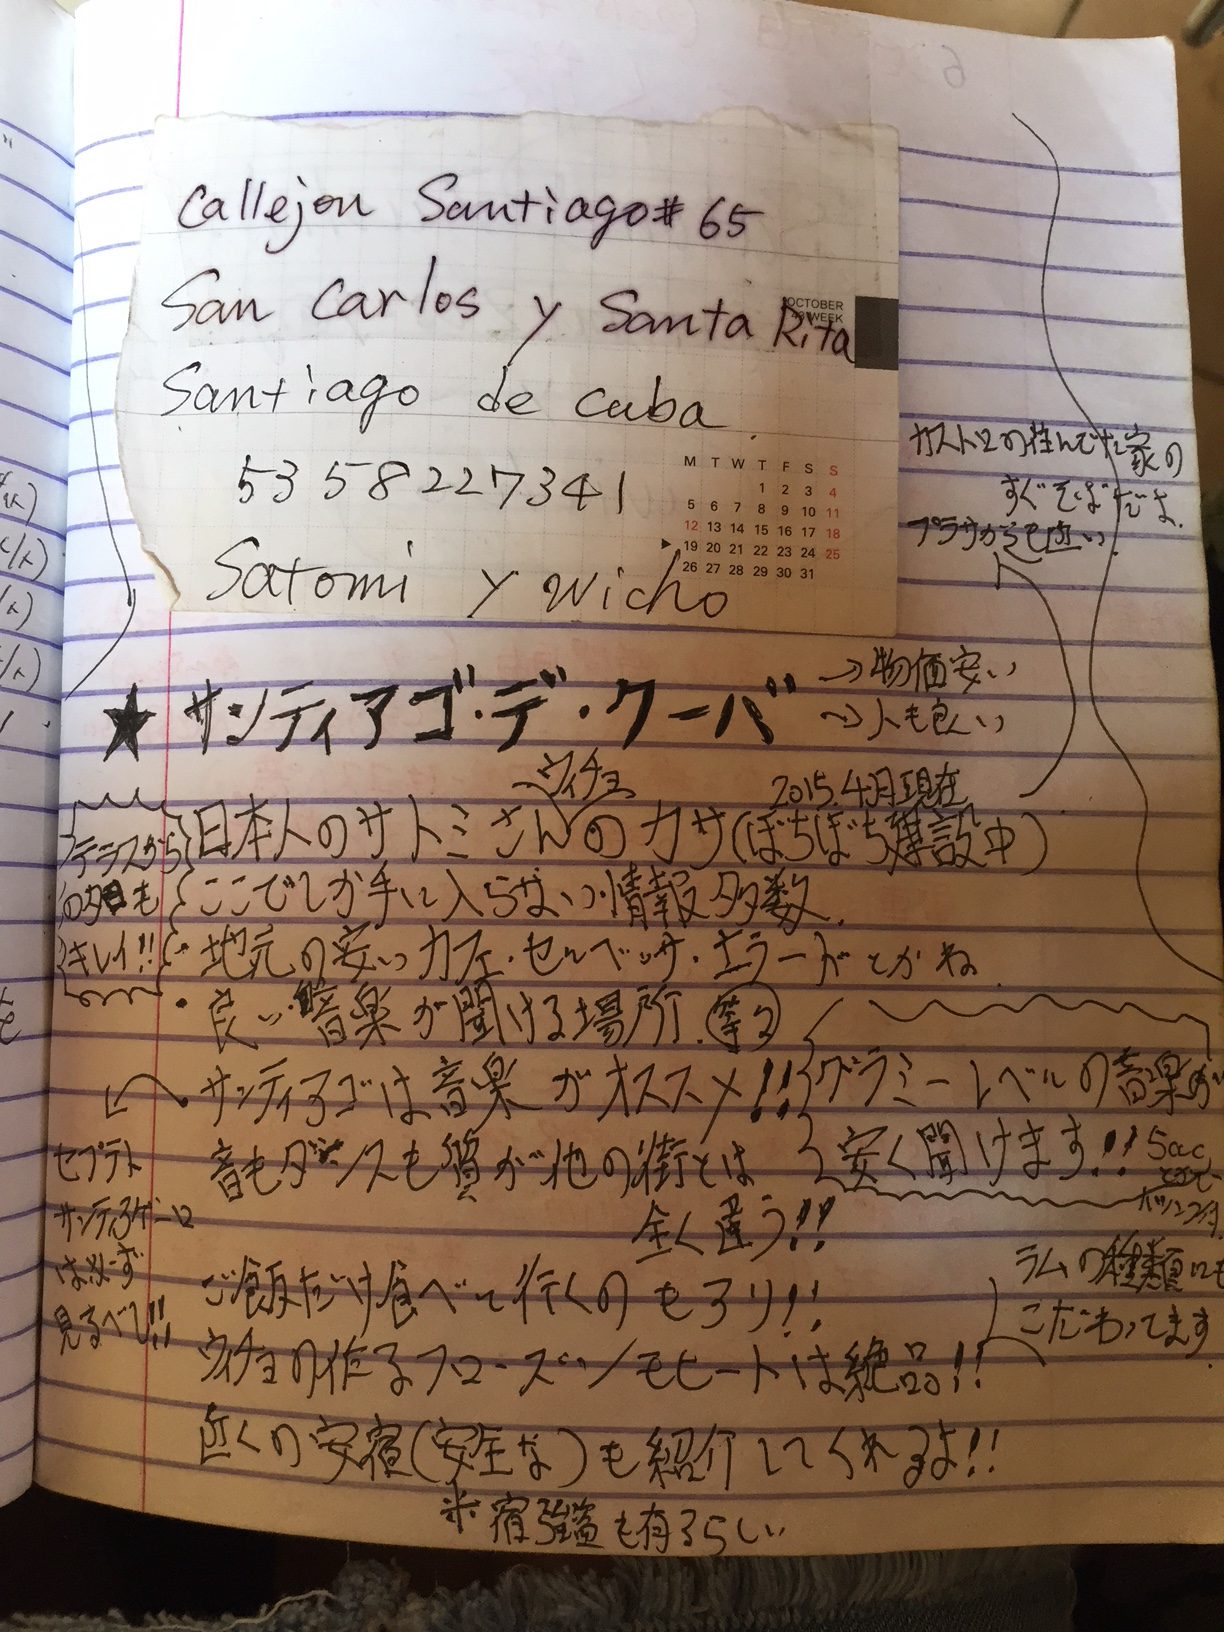 Callejon Santiago # 65
San Carlos y Santa Rita
Santiago de Cuba
53 58227341
Satomi y Wicho
OCTOBER
WEEK
M T W T F S S
1 2 3 4
5 6 7 8 9 10 11
12 13 14 15 16 17 18
▶ 19 20 21 22 23 24 25
26 27 28 29 30 31
カストロの住んでた家の
すぐそばだよ.
プラサからも近い.
★ サンティアゴ・デ・クーバ
→物価安い
→人も良い
ウィチョ
2015.4月現在
日本人のサトミさんのカサ(ぼちぼち建設中)
テラスから
の夕日も
キレイ!!
ここでしか手に入らない情報多数.
・地元の安いカフェ・セルベッサ・エラードとかね
・良い音楽が聞ける場所.等々
・サンティアゴは音楽がオススメ!!
グラミーレベルの音楽が
安く聞けます!!
5cuc
音もダンスも質が他の街とは
全く違う!!
セプテト
サンティアゲーロ
は必ず
見るべし!!
ご飯だけ食べて行くのもアリ!!
ウィチョの作るフローズンモヒートは絶品!!
ラムの種類にも
こだわってます.
近くの安宿(安全な)も紹介してくれるよ!!
※宿強盗も有るらしい